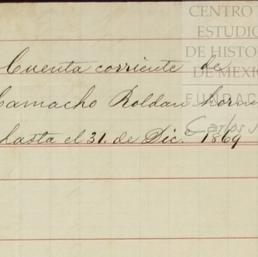 CENTRO
ESTUDIO
DE HISTO
DE MEXI
FUNDAC
Carlos
Cuenta corriente de
Camacho Roldan
hasta el 31. de Dic. 1869